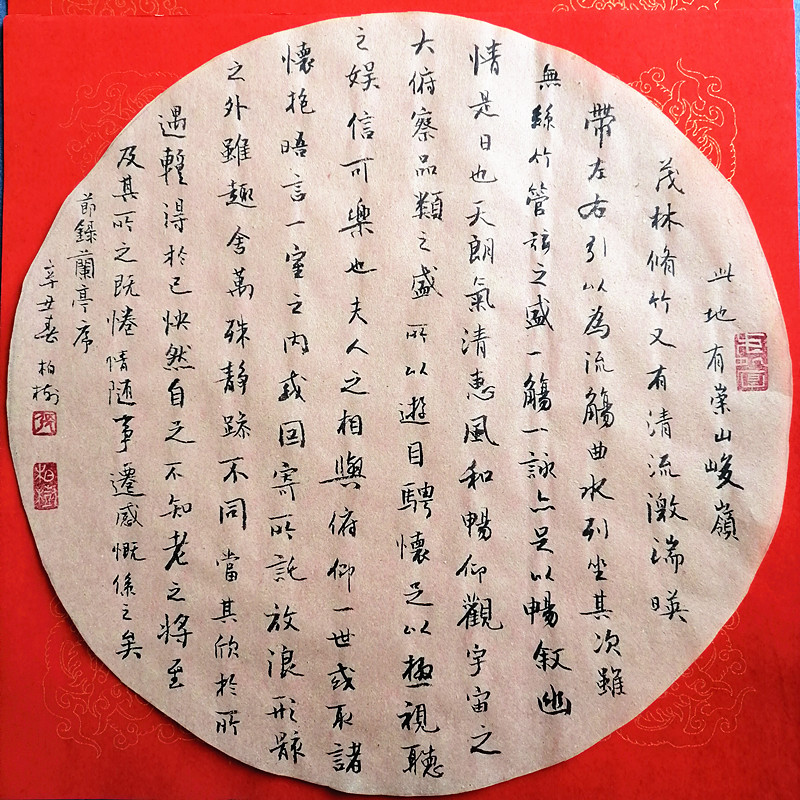 此地有崇山峻嶺
茂林脩竹又有清流激湍暎
帶左右引以為流觴曲水列坐其次雖
無絲竹管弦之盛一觴一詠亦足以暢敘幽
情是日也天朗氣清惠風和暢仰觀宇宙之
大俯察品類之盛所以遊目騁懷足以極視聽
之娛信可樂也夫人之相與俯仰一世或取諸
懷抱晤言一室之內或因寄所託放浪形骸
之外雖趣舍萬殊靜躁不同當其欣於所
遇蹔得於己快然自足不知老之將至
及其所之既惓情随事遷感慨係之矣
節錄蘭亭序
辛丑春柏樹
張
柏樹